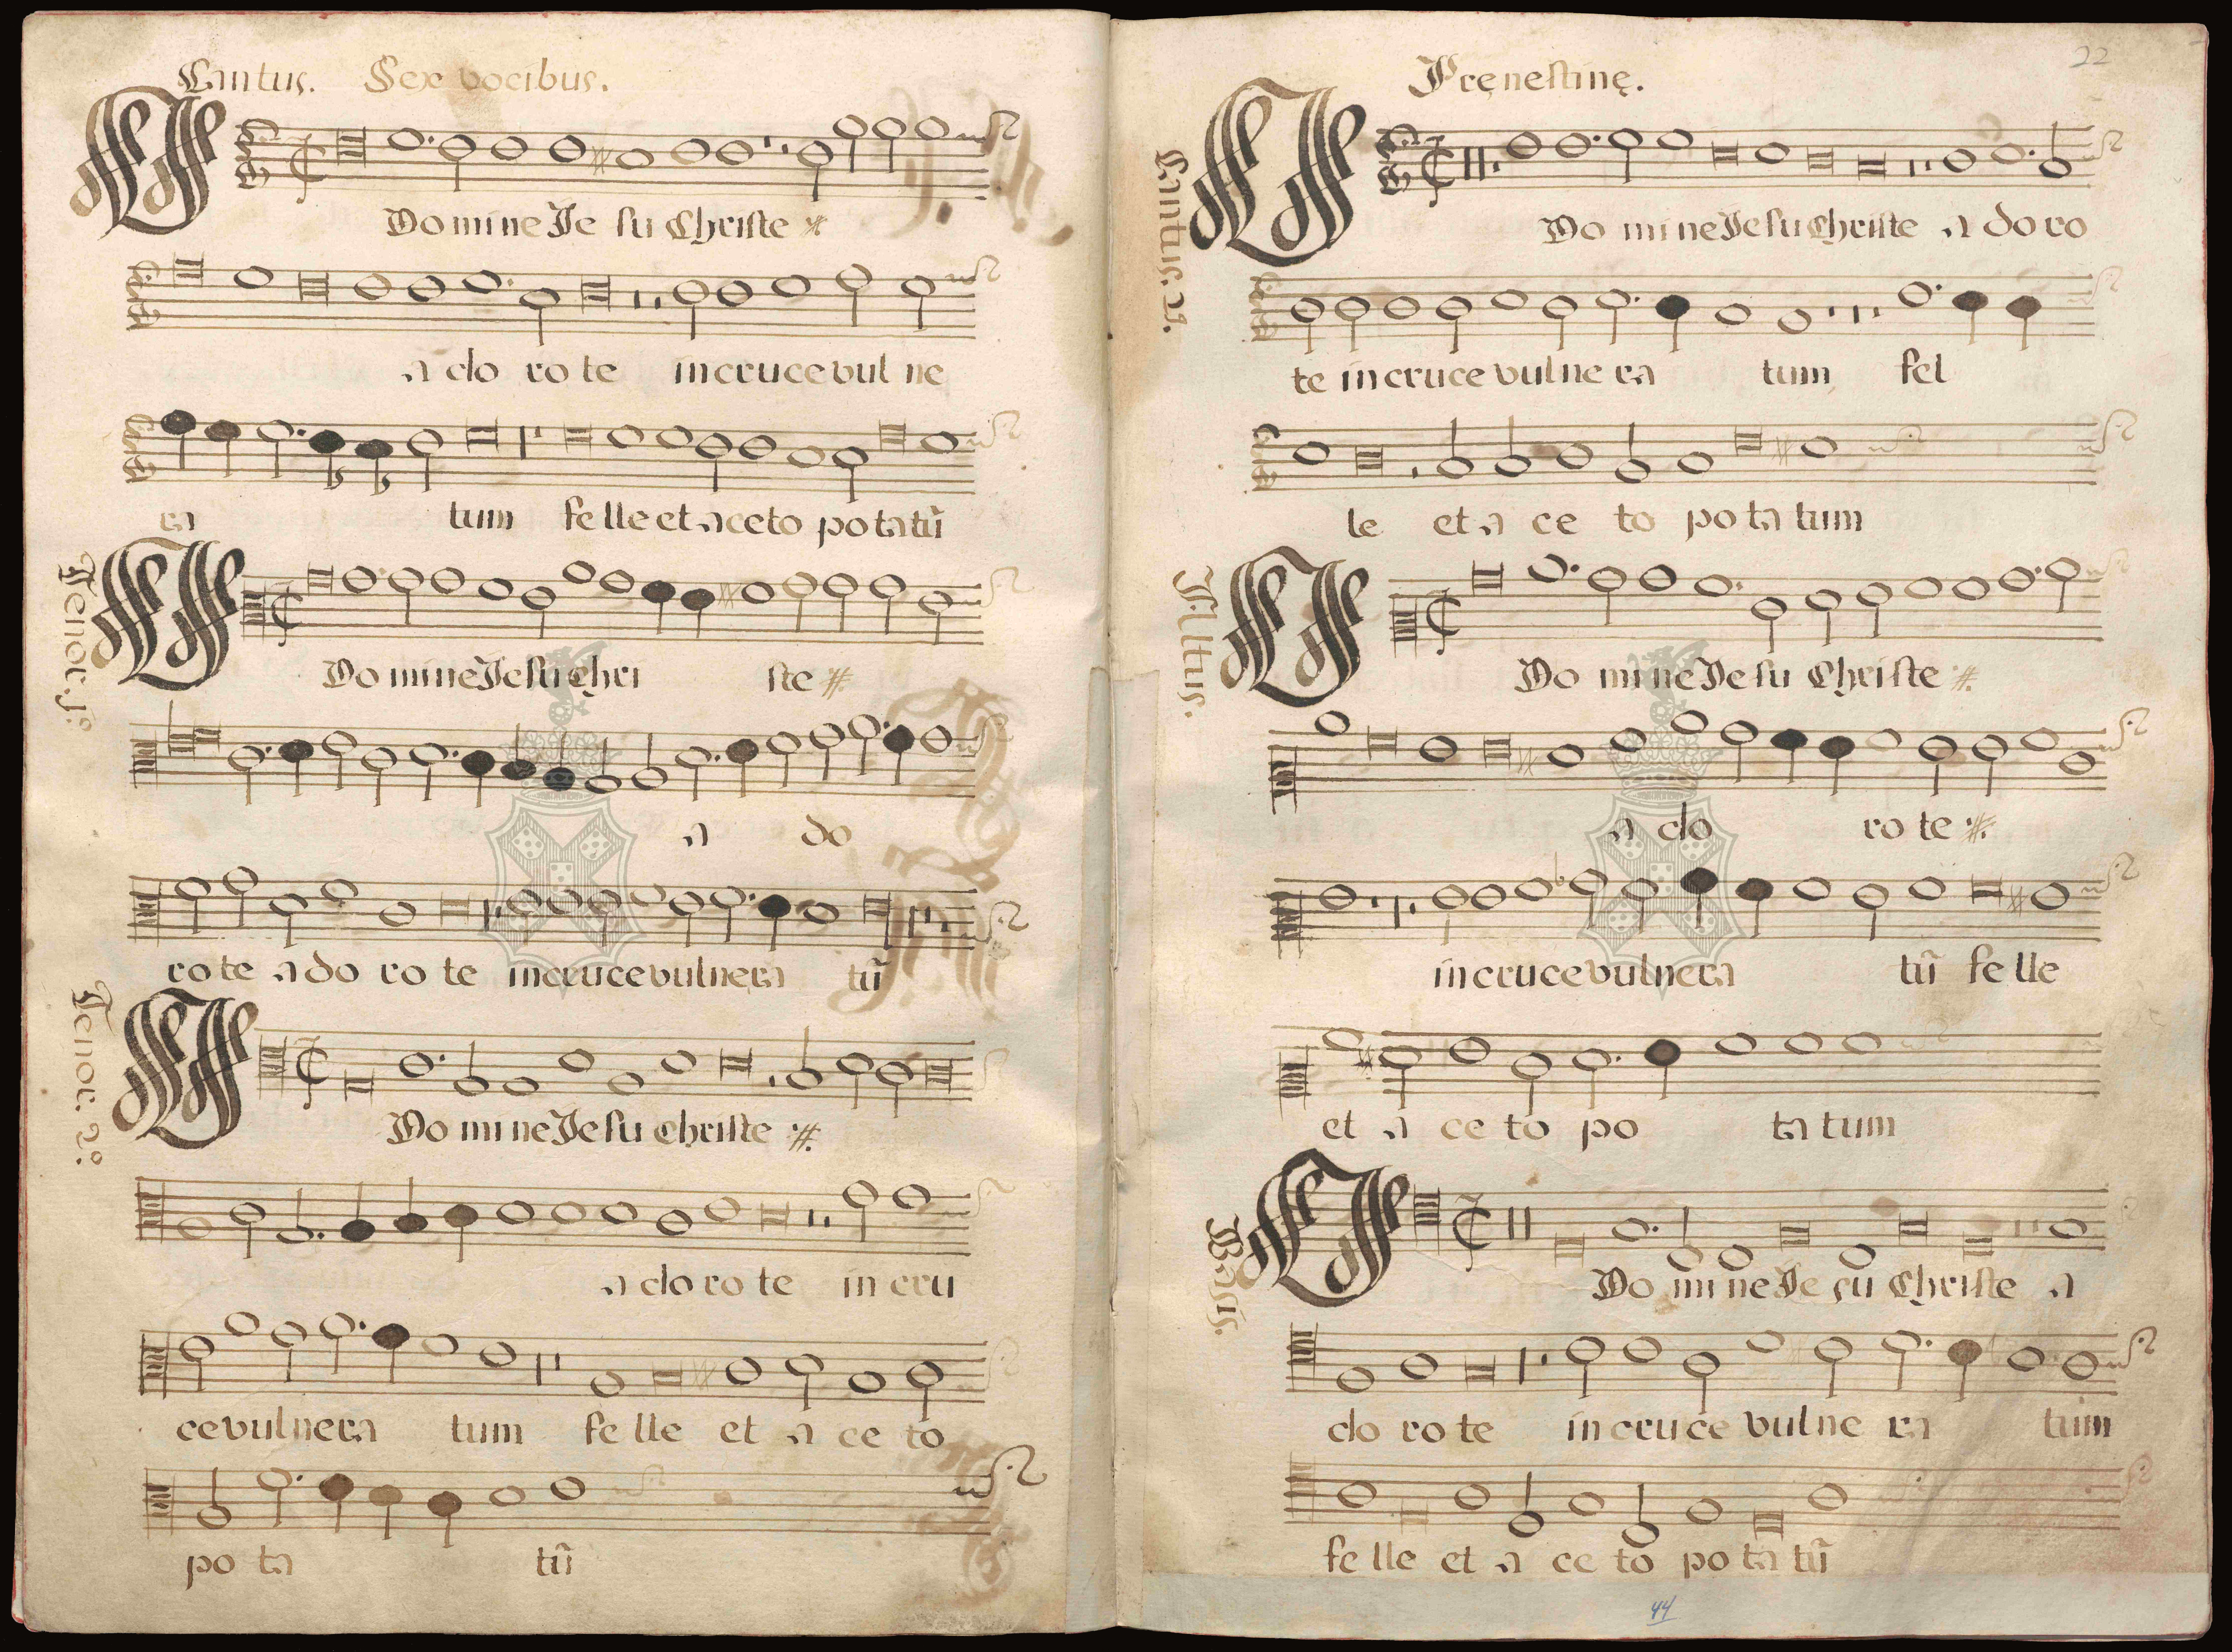 Cantus. Sex vocibus.
O Domine Iesu Christe
adoro te in cruce vulne
ra tum felle et aceto potatũ
Tenor. 1º
O Domine Iesu Chri ste
a do
ro te adoro te in cruce vulnera tũ
Tenor. 2º
O Domine Iesu Christe
adoro te in cru
ce vulnera tum felle et aceto
po ta tũ
Pręnestinę.
22
Cantus. 2
O Domine Iesu Christe adoro
te in cruce vulnera tum fel
le et aceto potatum
Altus.
O Domine Iesu Christe
ado ro te
in cruce vulnera tũ felle
et aceto po ta tum
Basis.
O Domine Iesu Christe a
doro te in cruce vulnera tum
felle et aceto potatũ
44